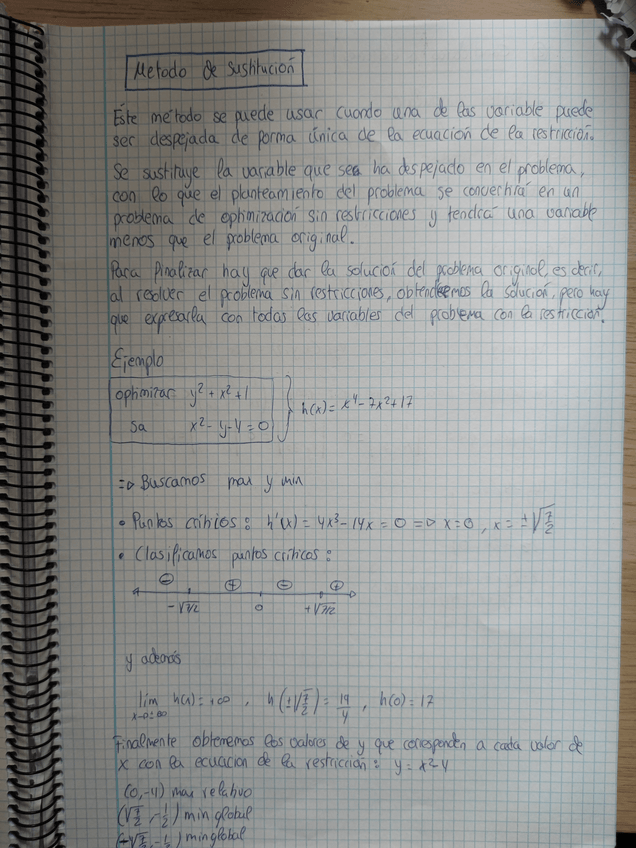 Metodo de sustitución
Este método se puede usar cuando una de las variable puede
ser despejada de forma única de la ecuacion de la restricción.
Se sustituye la variable que sea ha despejado en el problema,
con lo que el planteamiento del problema se convertirá en un
problema de optimización sin restricciones y tendrá una variable
menos que el problema original.
Para finalizar hay que dar la solución del problema original, es decir,
al resolver el problema sin restricciones, obtendremos la solución, pero hay
que expresarla con todas las variables del problema con la restricción.
Ejemplo
optimizar y² + x² + 1
sa x² - y - 4 = 0 } h(x) = x⁴ - 7x² + 17
=> Buscamos max y min
• Puntos criticos : h'(x) = 4x³ - 14x = 0 => x = 0 , x = ±√(7/2)
• Clasificamos puntos críticos :
⊖ ⊕ ⊖ ⊕
-√7/2 0 +√7/2
y además
lim x→±∞ h(x) = +∞ , h(±√(7/2)) = 19/4 , h(0) = 17
Finalmente obtenemos los valores de y que corresponden a cada valor de
x con la ecuacion de la restricción : y = x² - 4
(0, -4) max relativo
(√(7/2), -1/2) min global
(-√(7/2), -1/2) min global